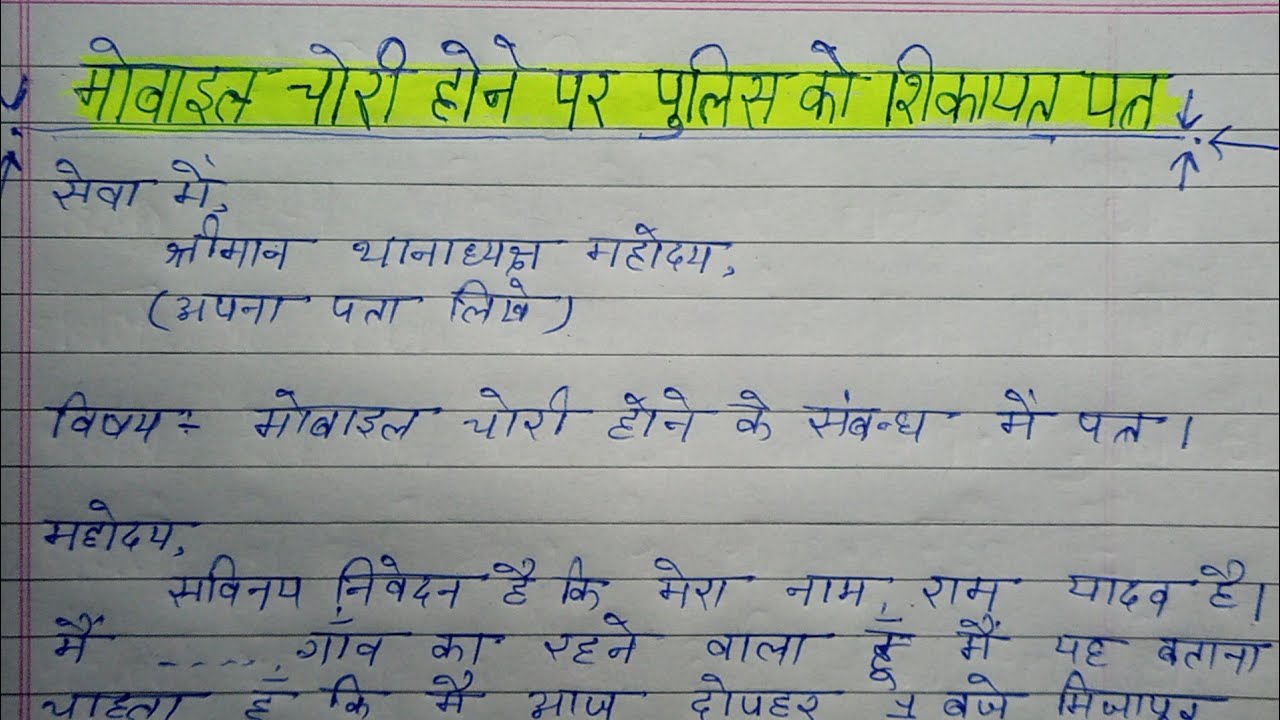 मोबाइल चोरी होने पर पुलिस को शिकायत पत्र
सेवा में,
श्रीमान थानाध्यक्ष महोदय,
(अपना पता लिखे)
विषय:- मोबाइल चोरी होने के संबन्ध में पत्र।
महोदय,
सविनय निवेदन है कि मेरा नाम, राम यादव है।
मैं ..... गाँव का रहने वाला हूँ मैं यह बताना
चाहता हूँ कि मै आज दोपहर 1 बजे मिर्जापुर